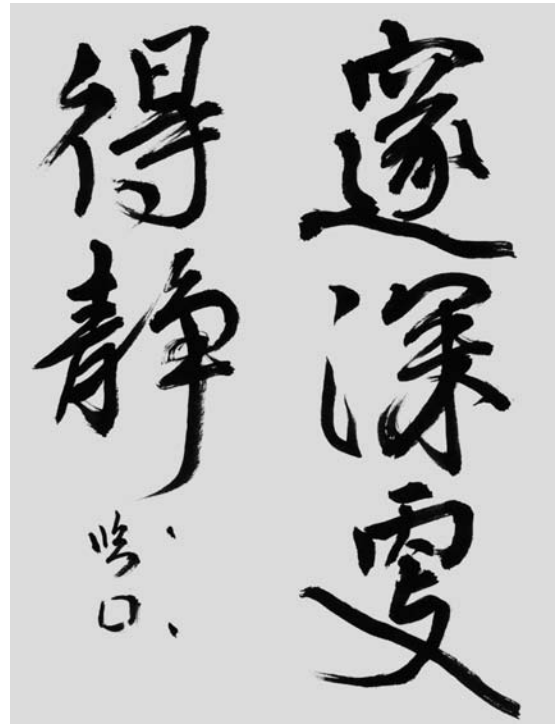 邃深處
得静